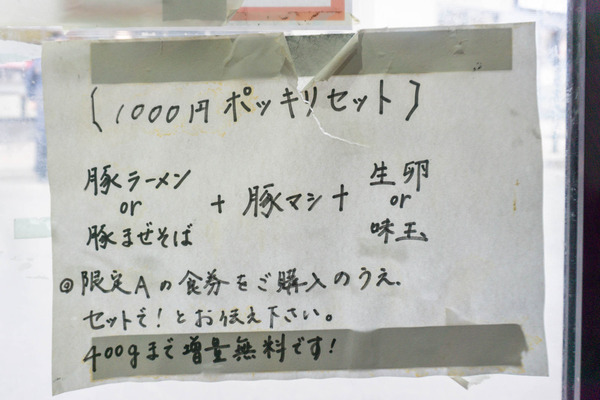 〔1000円ポッキリセット〕
豚ラーメン or 豚まぜそば + 豚マシ + 生卵 or 味玉
◎限定Aの食券をご購入のうえ、
セットで!とお伝え下さい。
400gまで増量無料です!